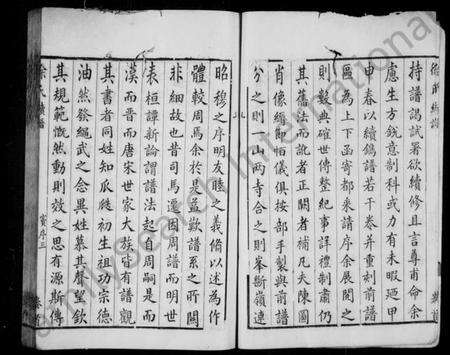 持譜謁試署欲續修且言尊甫命余
慮生方銳意制科或力有未暇迺甲
申春以續鐫譜若干卷并重刻前譜
匾為上下函寄都来請序余展閱之
則髮典確世傳整紀事詳禮制肅仍
其舊法而訛者正闕者補凡夫陳圖
肖像縟節栢儀俱按部手製與前譜
分之則一山兩寺合之則峯斷嶺連
昭穆之序明友睦之義脩以述為作
體較周馬余於是益歎譜系之所關
非細故也昔司馬遷因周譜而明世
表桓譚新論謂譜法起自周嗣是而
漢而晋而唐宋世家大族皆有譜觀
其書者同姓知瓜緜初生祖功宗德
油然發繩武之念異姓慕其聲望欽
其規範慨然動則效之思有源斯傳
FamilySearch International